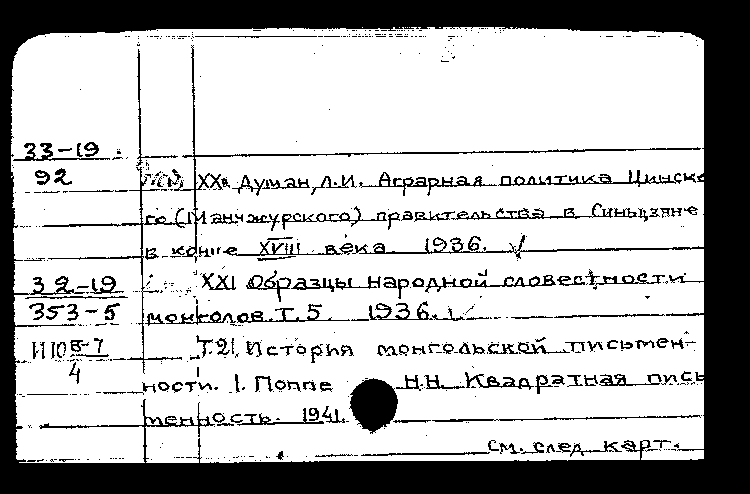 33-19
92 XXа Думан, Л.И. Аграрная политика Цинско
го (Манчжурского) правительства в Синьцзяне
в конце XVIII века 1936. √
32-19 XXI Образцы народной словестности
353-5 монголов. Т. 5. 1936. √
И108-7 Т.21. История монгольской письмен-
4 ности. 1. Поппе Н.Н. Квадратная пись
менность. 1941.
См. след карт.